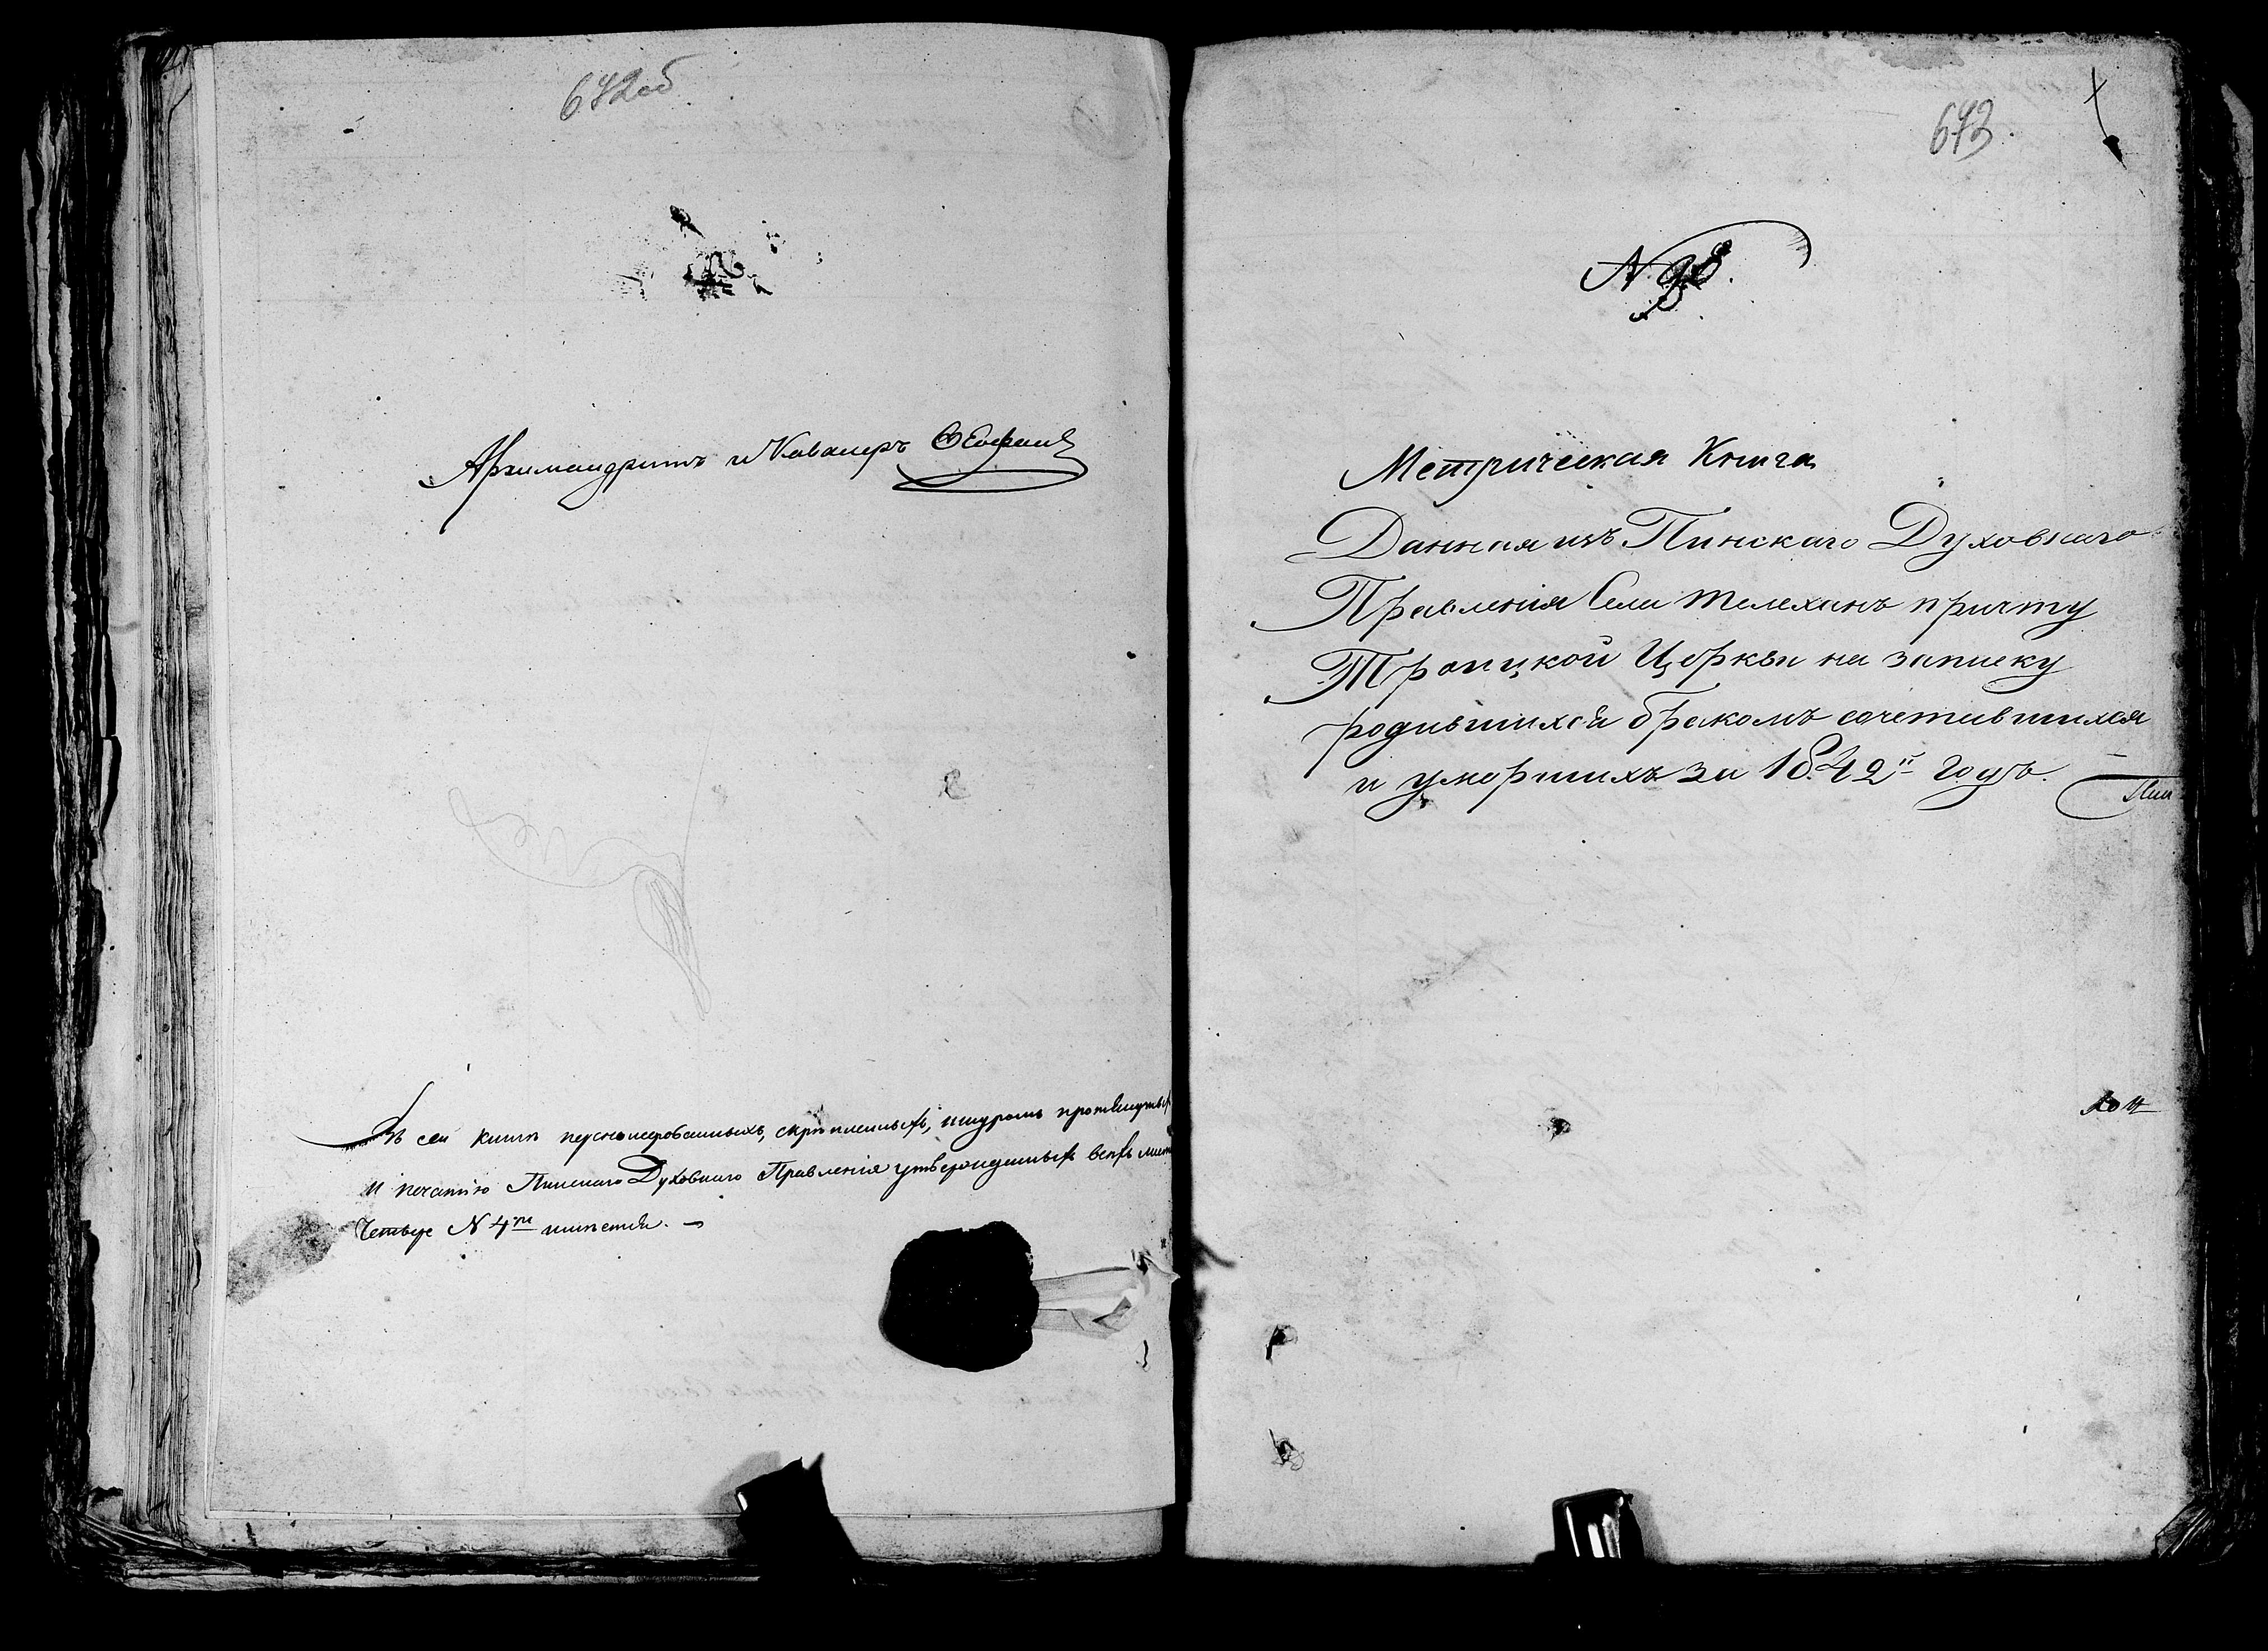 672об
Архимандритъ и Кавалеръ
Въ сей книгѣ перенумерованныхъ, скрѣпленныхъ, шнуромъ протянутых
и печатью Пинскаго Духовнаго Правленія утвержденныхъ всѣхъ лист
Четыре N 4ре
673.
N
Метрическая Книга
Данная изъ Пинскаго Духовнаго
Правленія Села Телеханъ причту
Троицкой Церкви на записку
родившихся бракомъ сочетавшихся
и умершихъ за 1842й годъ.
Пин